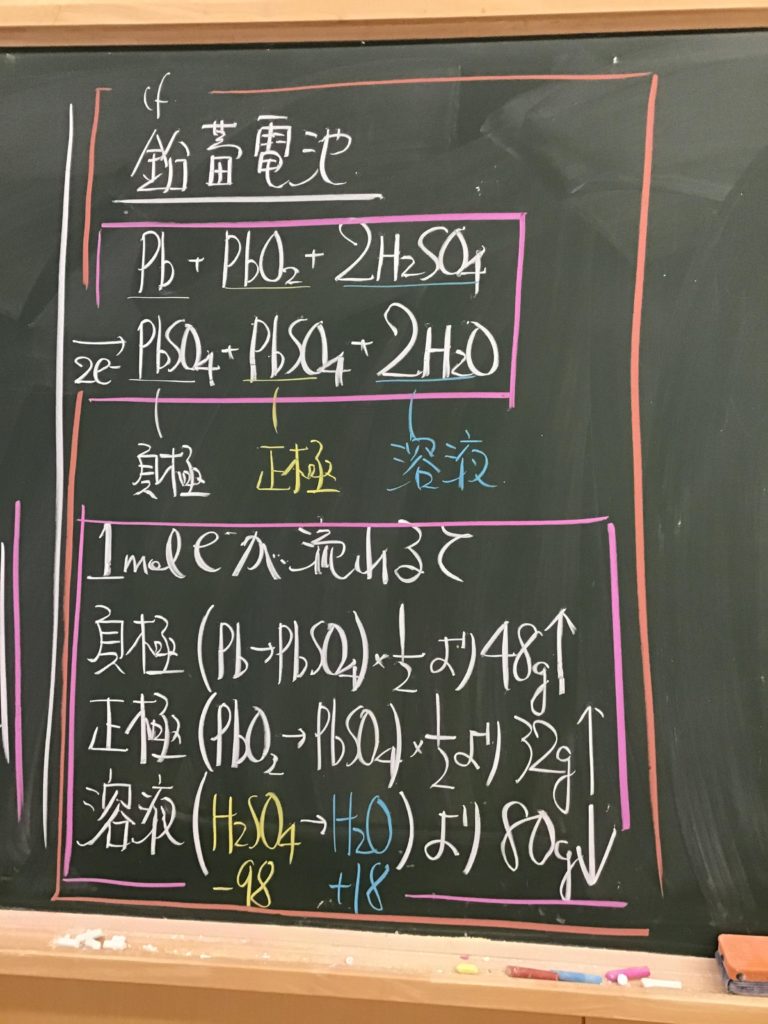 if
鉛蓄電池
Pb + PbO₂ + 2H₂SO₄
→ 2e⁻ PbSO₄ + PbSO₄ + 2H₂O
負極 正極 溶液
1mol e⁻が流れると
負極 (Pb→PbSO₄)×1/2 より 48g↑
正極 (PbO₂→PbSO₄)×1/2 より 32g↑
溶液 (H₂SO₄→H₂O) より 80g↓
-98 +18